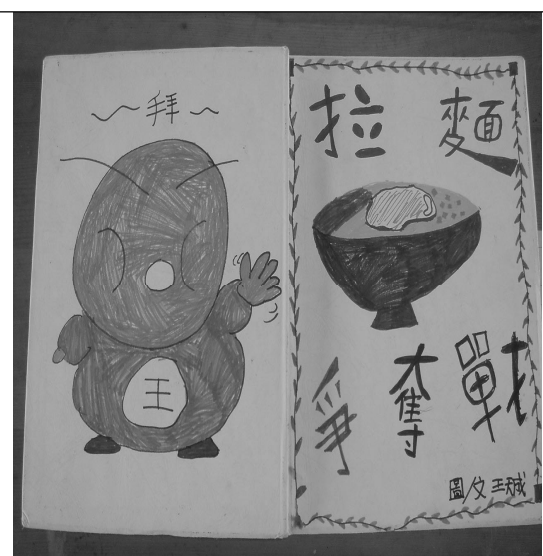 ～拜～
王
拉麵
爭奪戰
圖/文 王珹